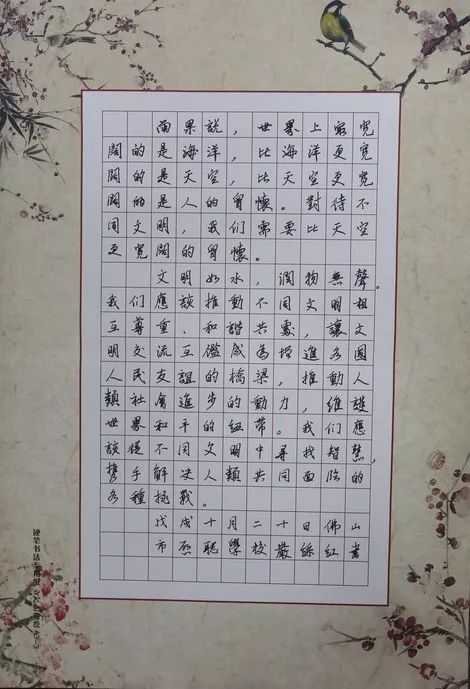 雨果説，世界上最寬
闊的是海洋，比海洋更寬
闊的是天空，比天空更寬
闊的是人的胷懷。對待不
同文明，我們需要比天空
更寬闊的胷懷。
文明如水，潤物無聲。
我們應該推動不同文明相
互尊重、和諧共處，讓文
明交流互鑑成為增進各國
人民友誼的橋梁，推動人
類社會進步的動力，維護
世界和平的紐帶。我們應
該從不同文明中尋找智慧，
攜手解決人類共同面臨的
各種挑戰。
戊戌十月二十日佛山
市啟聰學校嚴紅書
硬笔书法